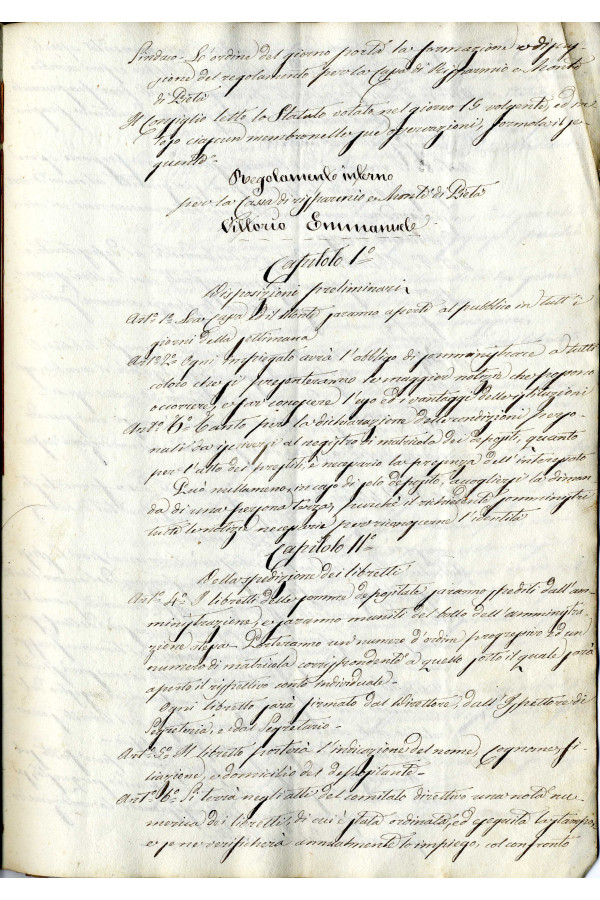 Sindaco. L'ordine del giorno porta la formazione e dispo-
sizione del regolamento per la Cassa di Risparmio e Monte
di Pietà
Il Consiglio letto lo Statuto votato nel giorno 19 volgente, ed in-
teso ciascun membro nelle sue osservazioni, formola il se-
guente
Regolamento interno
per la Cassa di risparmio e Monte di Pietà
Vittorio Emmanuele
Capitolo 1º
Disposizioni preliminari
Artº 1º La Cassa ed il Monte saranno aperti al pubblico in tutt'i
giorni della settimana
Artº 2º Ogni impiegato avrà l'obbligo di somministrare a tutti
coloro che si presenteranno le maggiori notizie che possono
occorrere, e far conoscere l'uso ed i vantaggi delle istituzioni
Artº 3º Tanto per la dichiarazione delle condizioni perso-
nali da iscriversi al registro di matricola dei depositi, quanto
per l'atto dei prestiti, è necessaria la presenza dell'interessato
Può nullameno, in caso di solo deposito, accogliersi la diman-
da di una persona terza, purchè il richiedente somministri
tutte le notizie necessarie per rimanerne l'identità
Capitolo IIº
Della spedizione dei libretti
Artº 4º I libretti delle somme depositate saranno spediti dall'am-
ministrazione, e saranno muniti del bollo dell'amministra-
zione stessa. Porteranno un numero d'ordine progressivo ed un
numero di matricola corrispondente a quello sotto il quale sarà
aperto il rispettivo conto individuale.
Ogni libretto sarà firmato dal Direttore, dall'Ispettore di
Segreteria, e dal Segretario.
Artº 5º Il libretto porterà l'indicazione del nome, cognome, fi-
liazione, e domicilio del depositante.
Artº 6º Si terrà negli atti del comitato direttivo una nota nu-
merica dei libretti, di cui è stata ordinata, ed eseguita la stampa,
e se ne verificherà annualmente lo impiego, col confronto